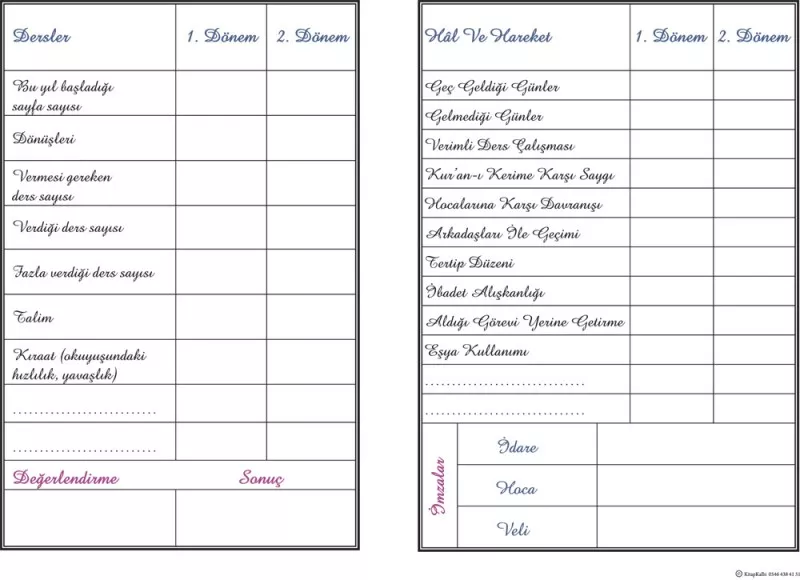 Dersler 1. Dönem 2. Dönem
Bu yıl başladığı
sayfa sayısı
Dönüşleri
Vermesi gereken
ders sayısı
Verdiği ders sayısı
Fazla verdiği ders sayısı
Talim
Kıraat (okuyuşundaki
hızlılık, yavaşlık)
...........................
...........................
Değerlendirme Sonuç
Hâl Ve Hareket 1. Dönem 2. Dönem
Geç Geldiği Günler
Gelmediği Günler
Verimli Ders Çalışması
Kur'an-ı Kerime Karşı Saygı
Hocalarına Karşı Davranışı
Arkadaşları İle Geçimi
Tertip Düzeni
İbadet Alışkanlığı
Aldığı Görevi Yerine Getirme
Eşya Kullanımı
..............................
..............................
İmzalar
İdare
Hoca
Veli